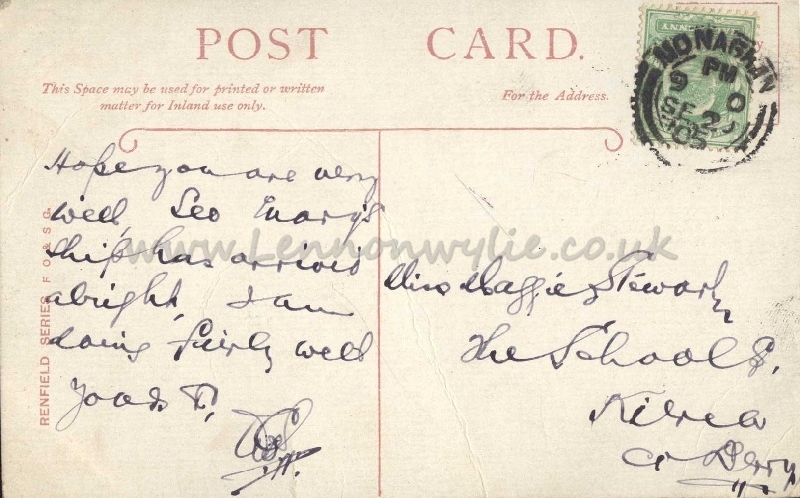 POST CARD.
This Space may be used for printed or written
matter for Inland use only.
For the Address.
MONAGHAN
PM
9 0
SE 2
05
RENFIELD SERIES F O & S G.
Hope you are very
well, Geo Emary's
ship has arrived
alright, I am
doing fairly well
Yours T,
www.Lennonwylie.co.uk
Miss Maggie Stewart
The Schools,
Kilrea
Co Derry